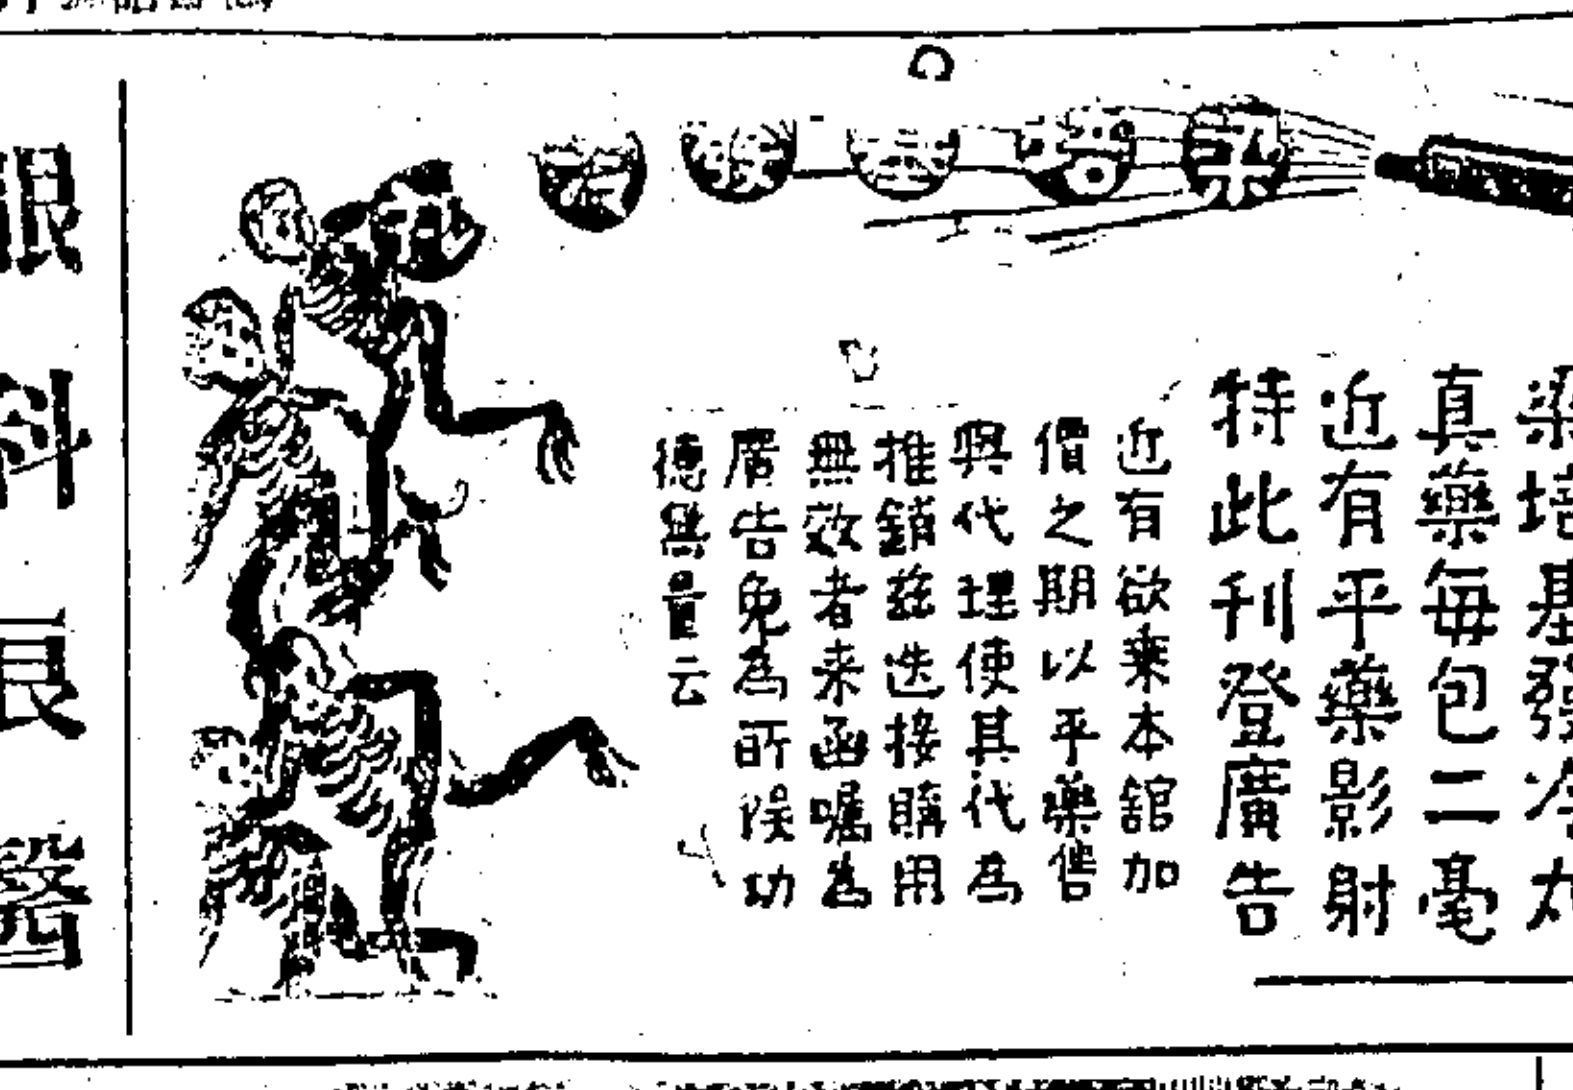 梁培基發冷丸
真藥每包二毫
近有平藥影射
特此刊登廣告
近有欲乘本舘加
價之期以平藥售
與代理使其代為
推銷茲迭接購用
無效者来函囑為
廣告免為所悮功
德無量云
眼科長醫